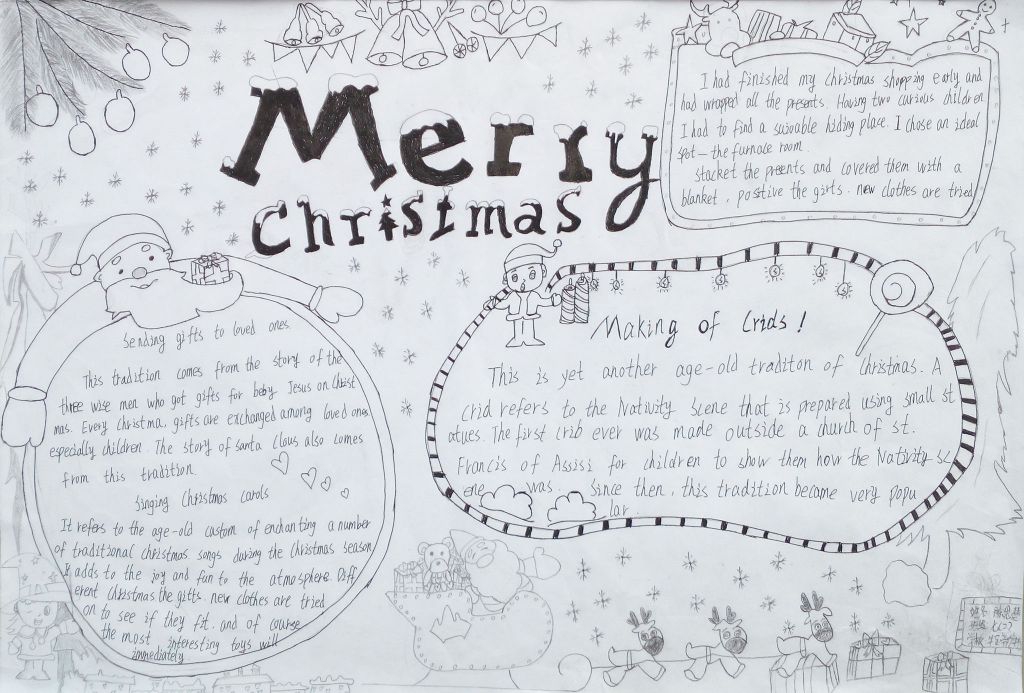 Merry
Christmas
I had finished my christmas shopping early and
had wrapped all the presents. Having two curious children
I had to find a suioable hiding place. I chose an ideal
spot — the furnace room.
stacket the preents and covered them with a
blanket, posstive the girts. new clothes are tried
Sending gifts to loved ones.
This tradition comes from the story of the
three wise men who got gifts for beby Jesus on Christ
mas. Every christma, gifts are exchanged among loved ones
especially children. The story of santa Claus also comes
from this tradition.
Singing Christmas carols
It refers to the age-old custom of enchanting a number
of traditional christmas songs during the Christmas season.
It adds to the joy and fun to the atmosphere. Diff
erent Christmas the gitts. new clothes are tried
on to see if they fit. and of course
the most interesting toys will
immediately
Making of Crids!
This is yet another age-old traditon of Christmas. A
crid refers to the Nativity scene that is prepared using small st
atues. The first crib ever was made outside a church of st.
Francis of Assisi for children to show them how the Nativity sc
ene was. Since then, this tradition became very popu
lar.